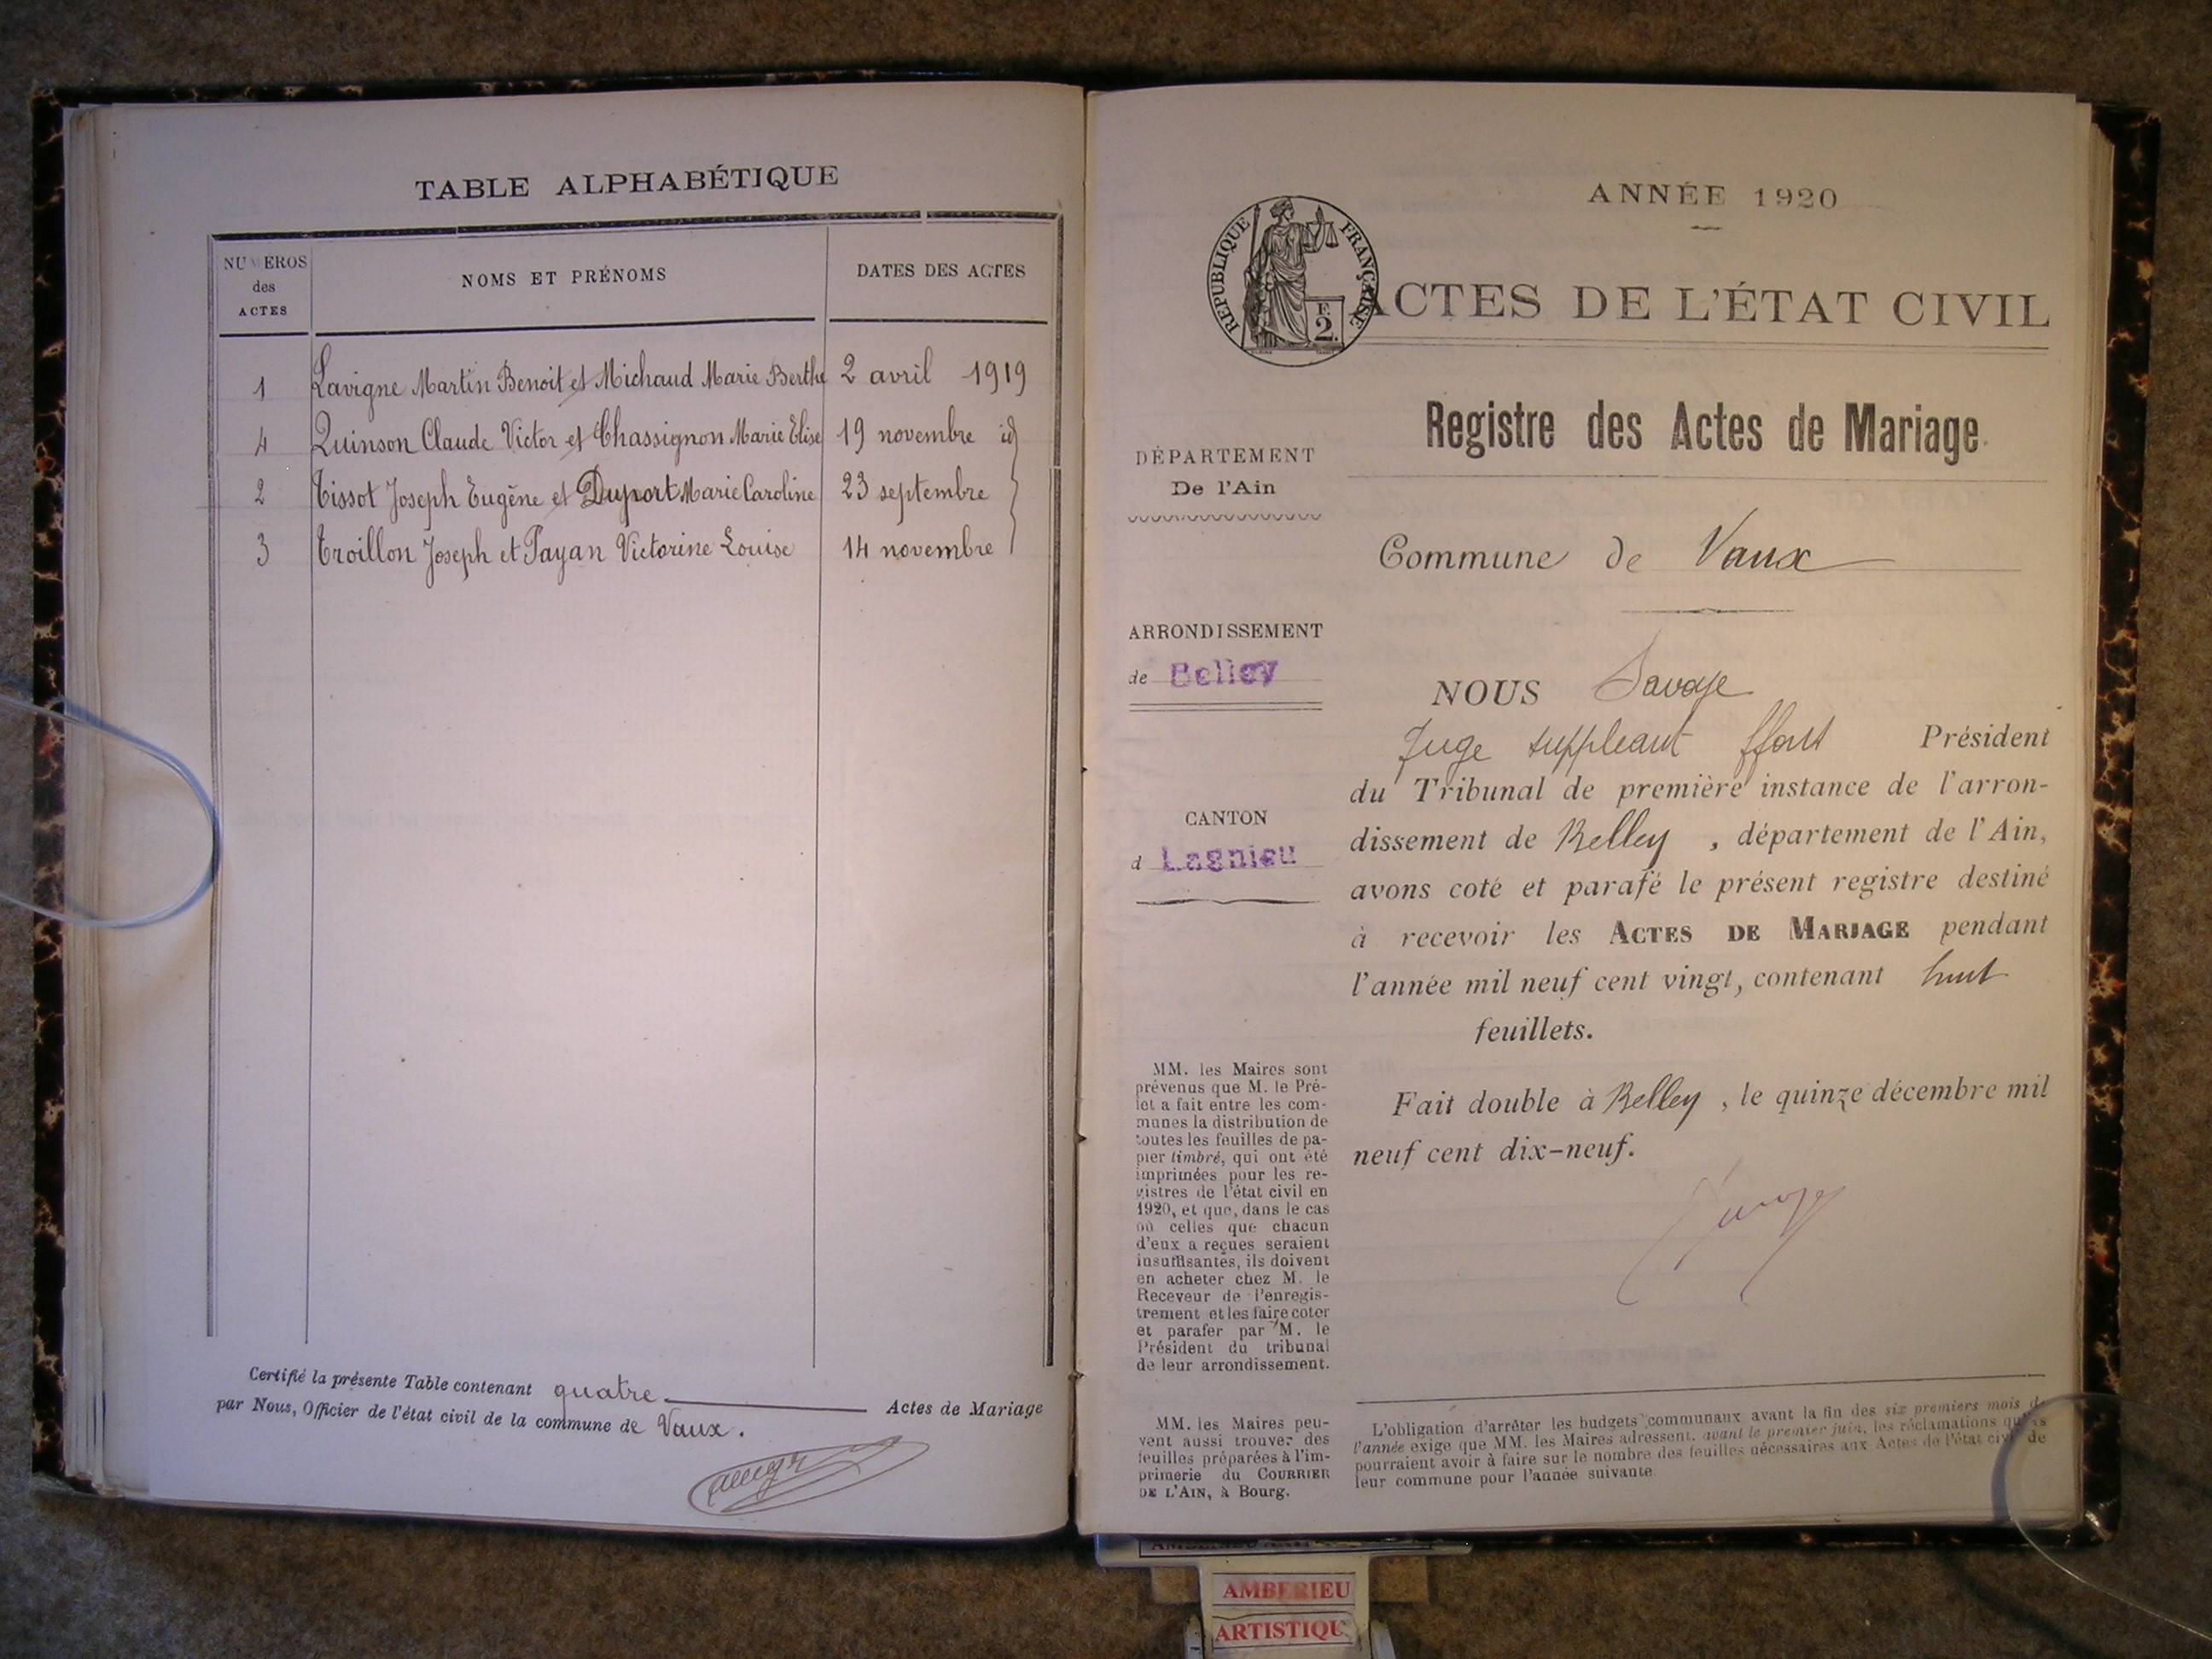 TABLE ALPHABÉTIQUE
NUMEROS
des
ACTES
NOMS ET PRÉNOMS
DATES DES ACTES
1 Lavigne Martin Benoit et Michaud Marie Berthe 2 avril 1919
4 Quinson Claude Victor et Chassignon Marie Elise 19 novembre id
2 Tissot Joseph Eugène et Duport Marie Caroline 23 septembre
3 Troillon Joseph et Payan Victorine Louise 14 novembre
Certifié la présente Table contenant quatre Actes de Mariage
par Nous, Officier de l'état civil de la commune de Vaux.
ANNÉE 1920
RÉPUBLIQUE FRANÇAISE
F.
2.
ACTES DE L'ÉTAT CIVIL
Registre des Actes de Mariage
DÉPARTEMENT
De l'Ain
Commune de Vaux
ARRONDISSEMENT
de Belley
CANTON
d Lagnieu
NOUS Savoye
Juge suppléant ffons Président
du Tribunal de première instance de l'arron-
dissement de Belley, département de l'Ain,
avons coté et parafé le présent registre destiné
à recevoir les ACTES DE MARIAGE pendant
l'année mil neuf cent vingt, contenant huit
feuillets.
Fait double à Belley, le quinze décembre mil
neuf cent dix-neuf.
MM. les Maires sont
prévenus que M. le Pré-
fet a fait entre les com-
munes la distribution de
toutes les feuilles de pa-
pier timbré, qui ont été
imprimées pour les re-
gistres de l'état civil en
1920, et que, dans le cas
où celles que chacun
d'eux a reçues seraient
insuffisantes, ils doivent
en acheter chez M. le
Receveur de l'enregis-
trement et les faire coter
et parafer par M. le
Président du tribunal
de leur arrondissement.
MM. les Maires peu-
vent aussi trouver des
feuilles préparées à l'im-
primerie du COURRIER
DE L'AIN, à Bourg.
L'obligation d'arrêter les budgets communaux avant la fin des six premiers mois de
l'année exige que MM. les Maires adressent, avant le premier juin, les réclamations qu'ils
pourraient avoir à faire sur le nombre des feuilles nécessaires aux Actes de l'état civil de
leur commune pour l'année suivante.
AMBERIEU
ARTISTIQU